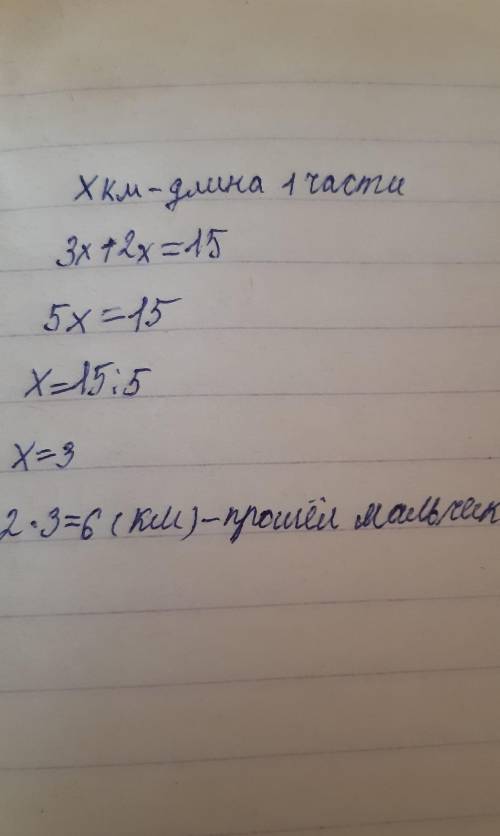 X км - длина 1 части
3x+2x=15
5x=15
x=15:5
x=3
2·3=6 (км) - прошёл мальчик